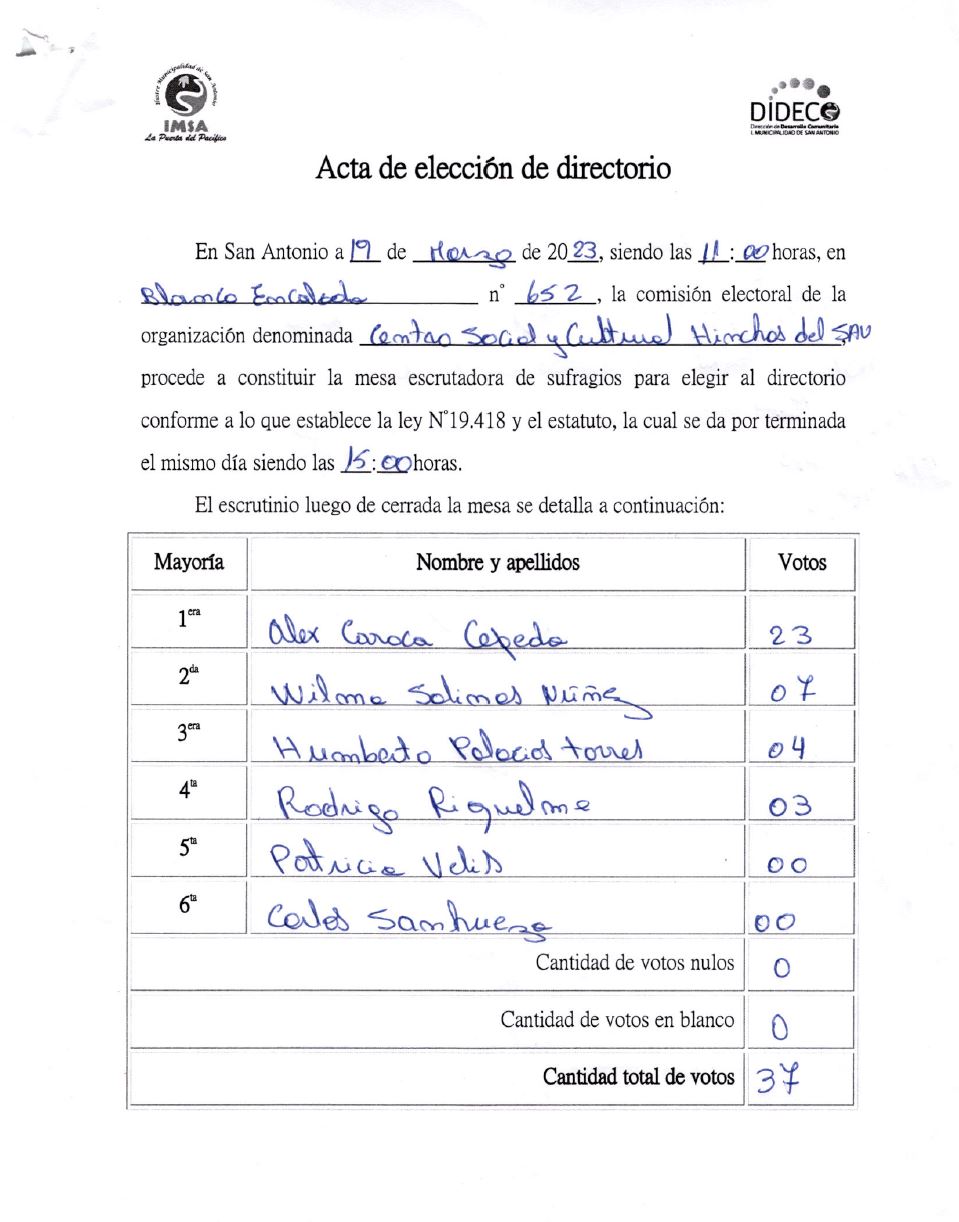 Ilustre Municipalidad de San Antonio
IMSA
La Puerta del Pacífico
DIDECO
Dirección de Desarrollo Comunitario
I. MUNICIPALIDAD DE SAN ANTONIO
Acta de elección de directorio
En San Antonio a 19 de Marzo de 2023, siendo las 11:00 horas, en
Blanco Encalada n° 652, la comisión electoral de la
organización denominada Centro Social y Cultural Hinchas del SAU
procede a constituir la mesa escrutadora de sufragios para elegir al directorio
conforme a lo que establece la ley N°19.418 y el estatuto, la cual se da por terminada
el mismo día siendo las 15:00 horas.
El escrutinio luego de cerrada la mesa se detalla a continuación:
Mayoría Nombre y apellidos Votos
1era Alex Caroca Cepeda 23
2da Wilma Salinas Núñez 07
3era Humberto Palacios Torres 04
4ta Rodrigo Riquelme 03
5ta Patricia Velis 00
6ta Carlos Sanhueza 00
Cantidad de votos nulos 0
Cantidad de votos en blanco 0
Cantidad total de votos 37